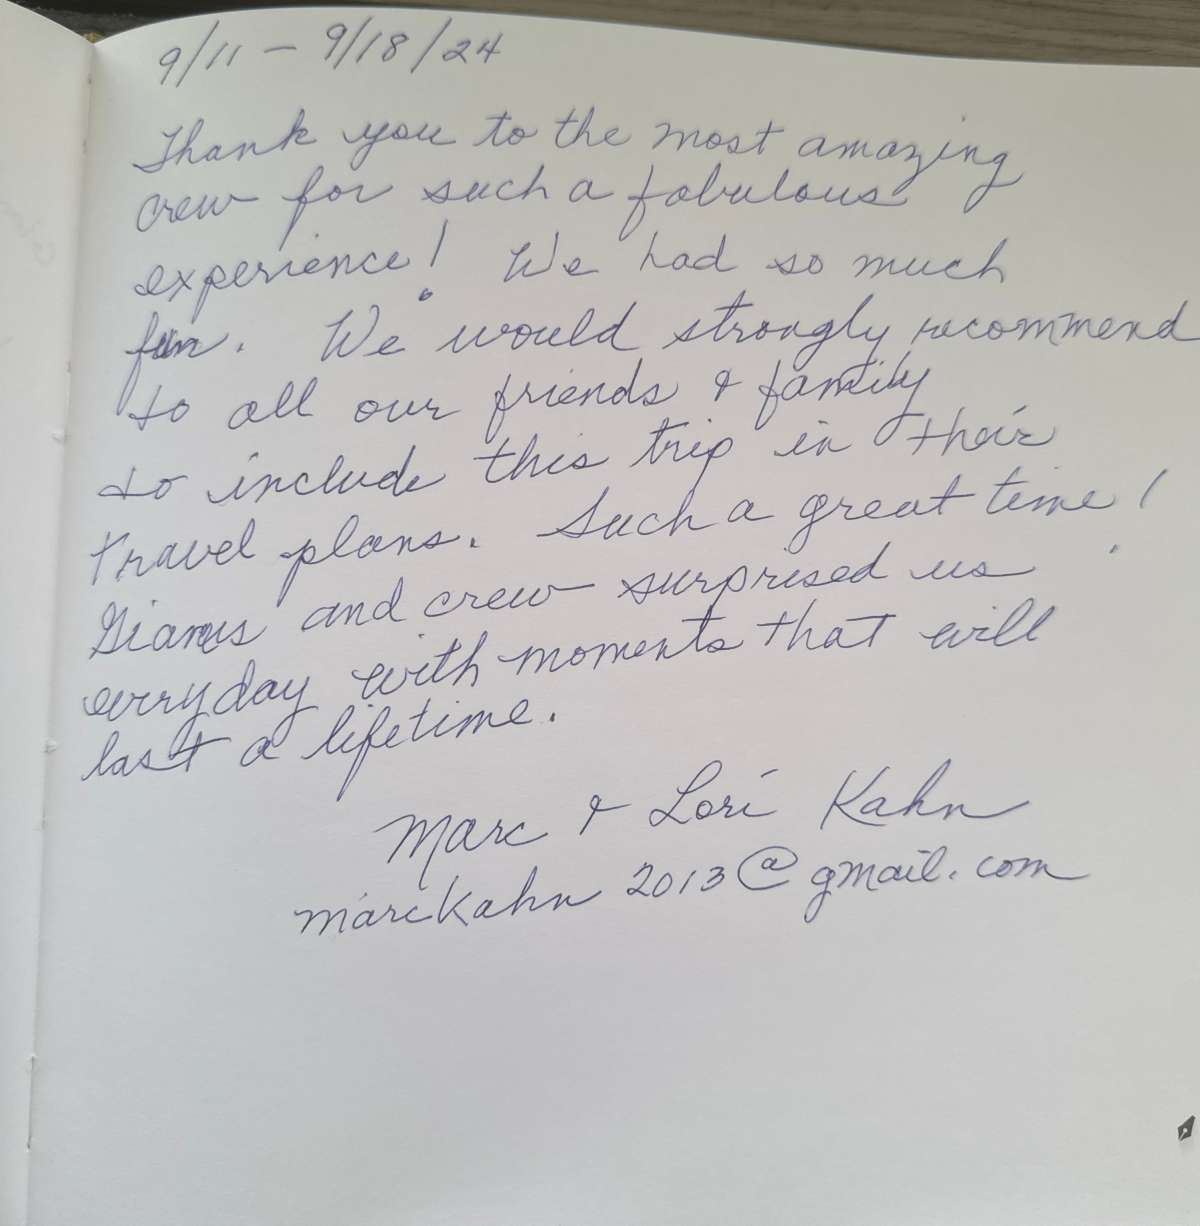 9/11 – 9/18/24
Thank you to the most amazing
crew for such a fabulous
experience! We had so much
fun. We would strongly recommend
to all our friends & family
to include this trip in their
travel plans. Such a great time!
and crew surprised us
everyday with moments that will
last a lifetime.
Marc & Lori Kahn
marckahn2013@gmail.com